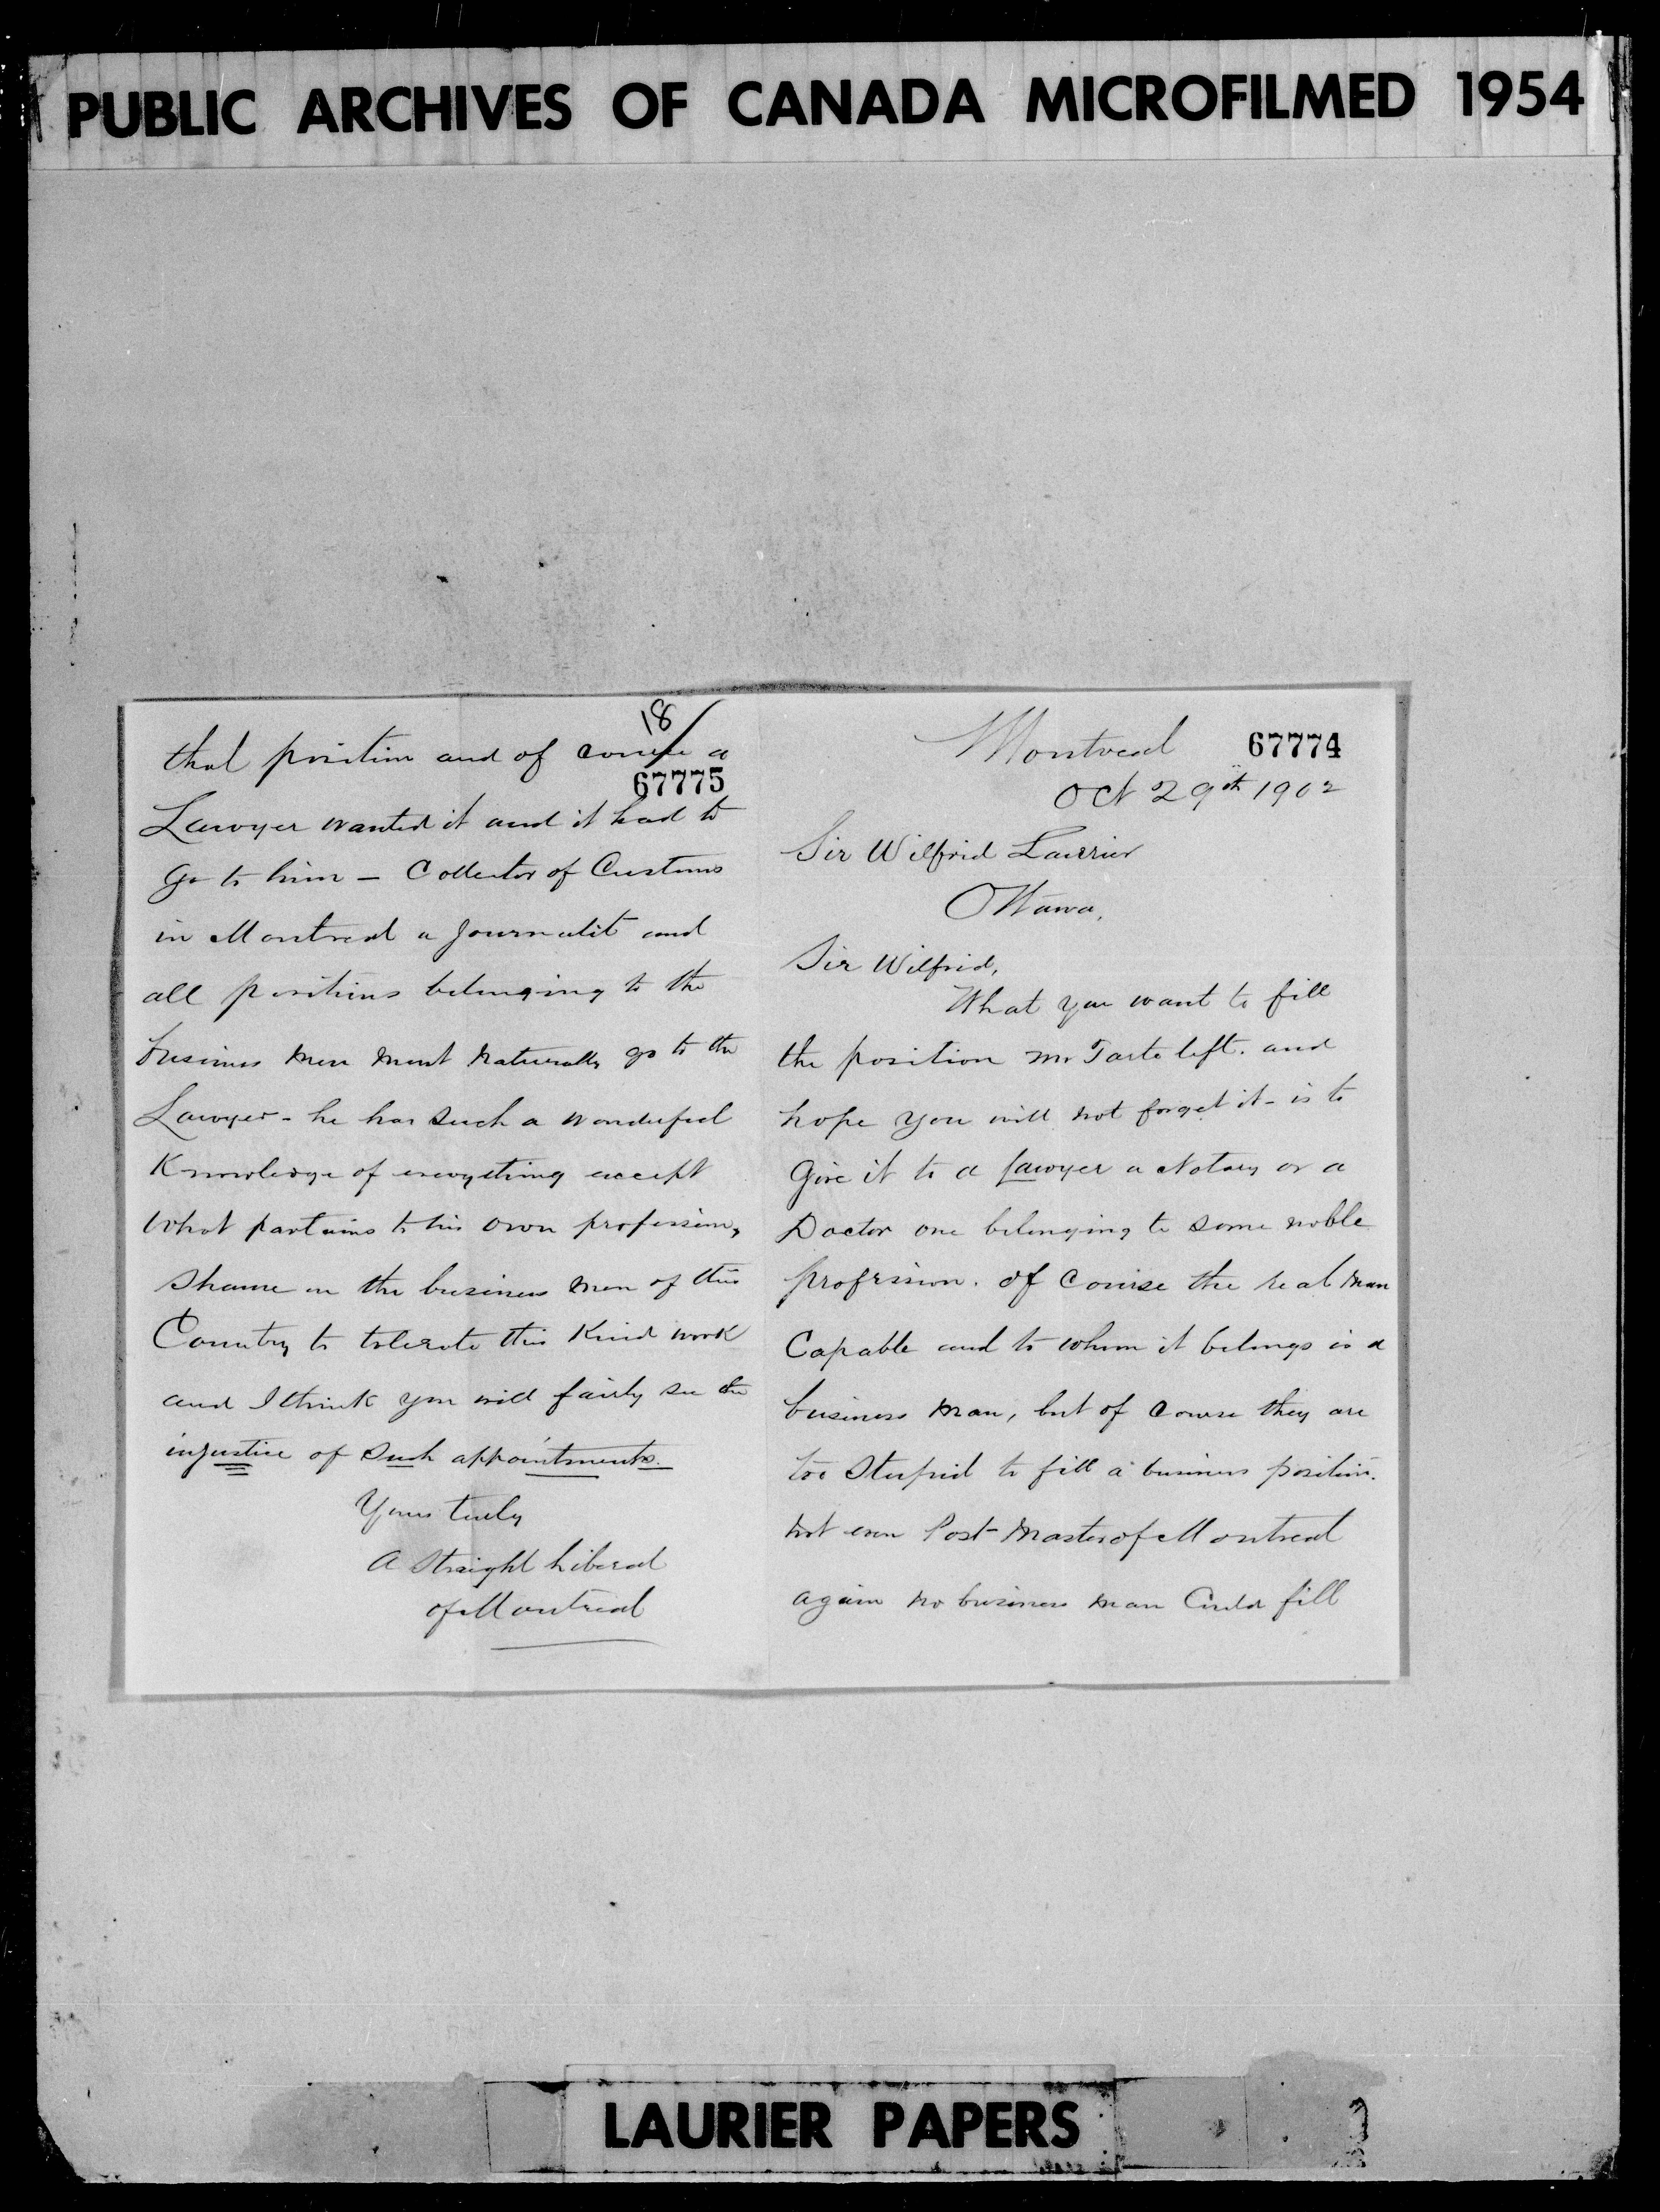 PUBLIC ARCHIVES OF CANADA MICROFILMED 1954
Montreal 67774
Oct 29th 1902
Sir Wilfrid Laurier
Ottawa,
Sir Wilfrid,
What you want to fill
the position Mr Tarte left. and
hope you will not forget it - is to
Give it to a Lawyer a Notary or a
Doctor one belonging to some noble
profession. Of Course the real man
Capable and to whom it belongs is a
business man, but of course they are
too stupid to fill a business position.
not even Post-Master of Montreal
again no business man Could fill
18
that position and of course a
67775
Lawyer wanted it and it had to
go to him - Collector of Customs
in Montreal a Journalit and
all positions belonging to the
business men must naturally go to the
Lawyer - he has such a wonderful
Knowledge of everything except
what partains to his own profession,
shame on the business men of this
Country to tolerate this Kind work
and I think you will fairly see the
injustice of such appointments.
Yours truly
A Straight Liberal
of Montreal
LAURIER PAPERS